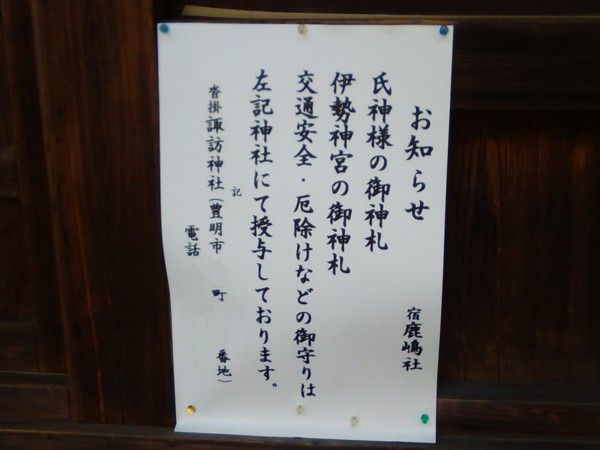 お知らせ
宿鹿嶋社
氏神様の御神札
伊勢神宮の御神札
交通安全・厄除けなどの御守りは
左記神社にて授与しております。
記
沓掛諏訪神社(豊明市 町 番地)
電話